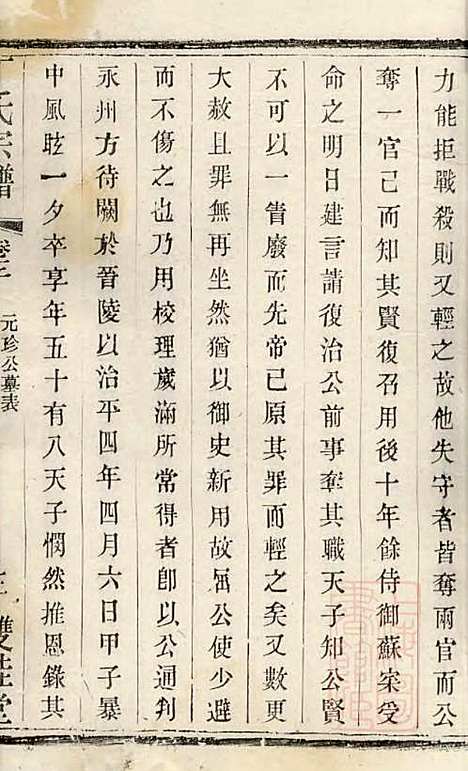 力能拒戰殺則又輕之故他失守者皆奪兩官而公
奪一官已而知其賢復召用後十年餘侍御蘇寀受
命之明日建言請復治公前事奪其職天子知公賢
不可以一眚廢而先帝已原其罪而輕之矣又數更
大赦且罪無再坐然猶以御史新用故屈公使少避
而不傷之也乃用校理歲滿所常得者卽以公通判
永州方待闕於晉陵以治平四年四月六日甲子暴
中風眩一夕卒享年五十有八天子憫然推恩錄其
氏宗譜
元珍公墓表
雙桂堂